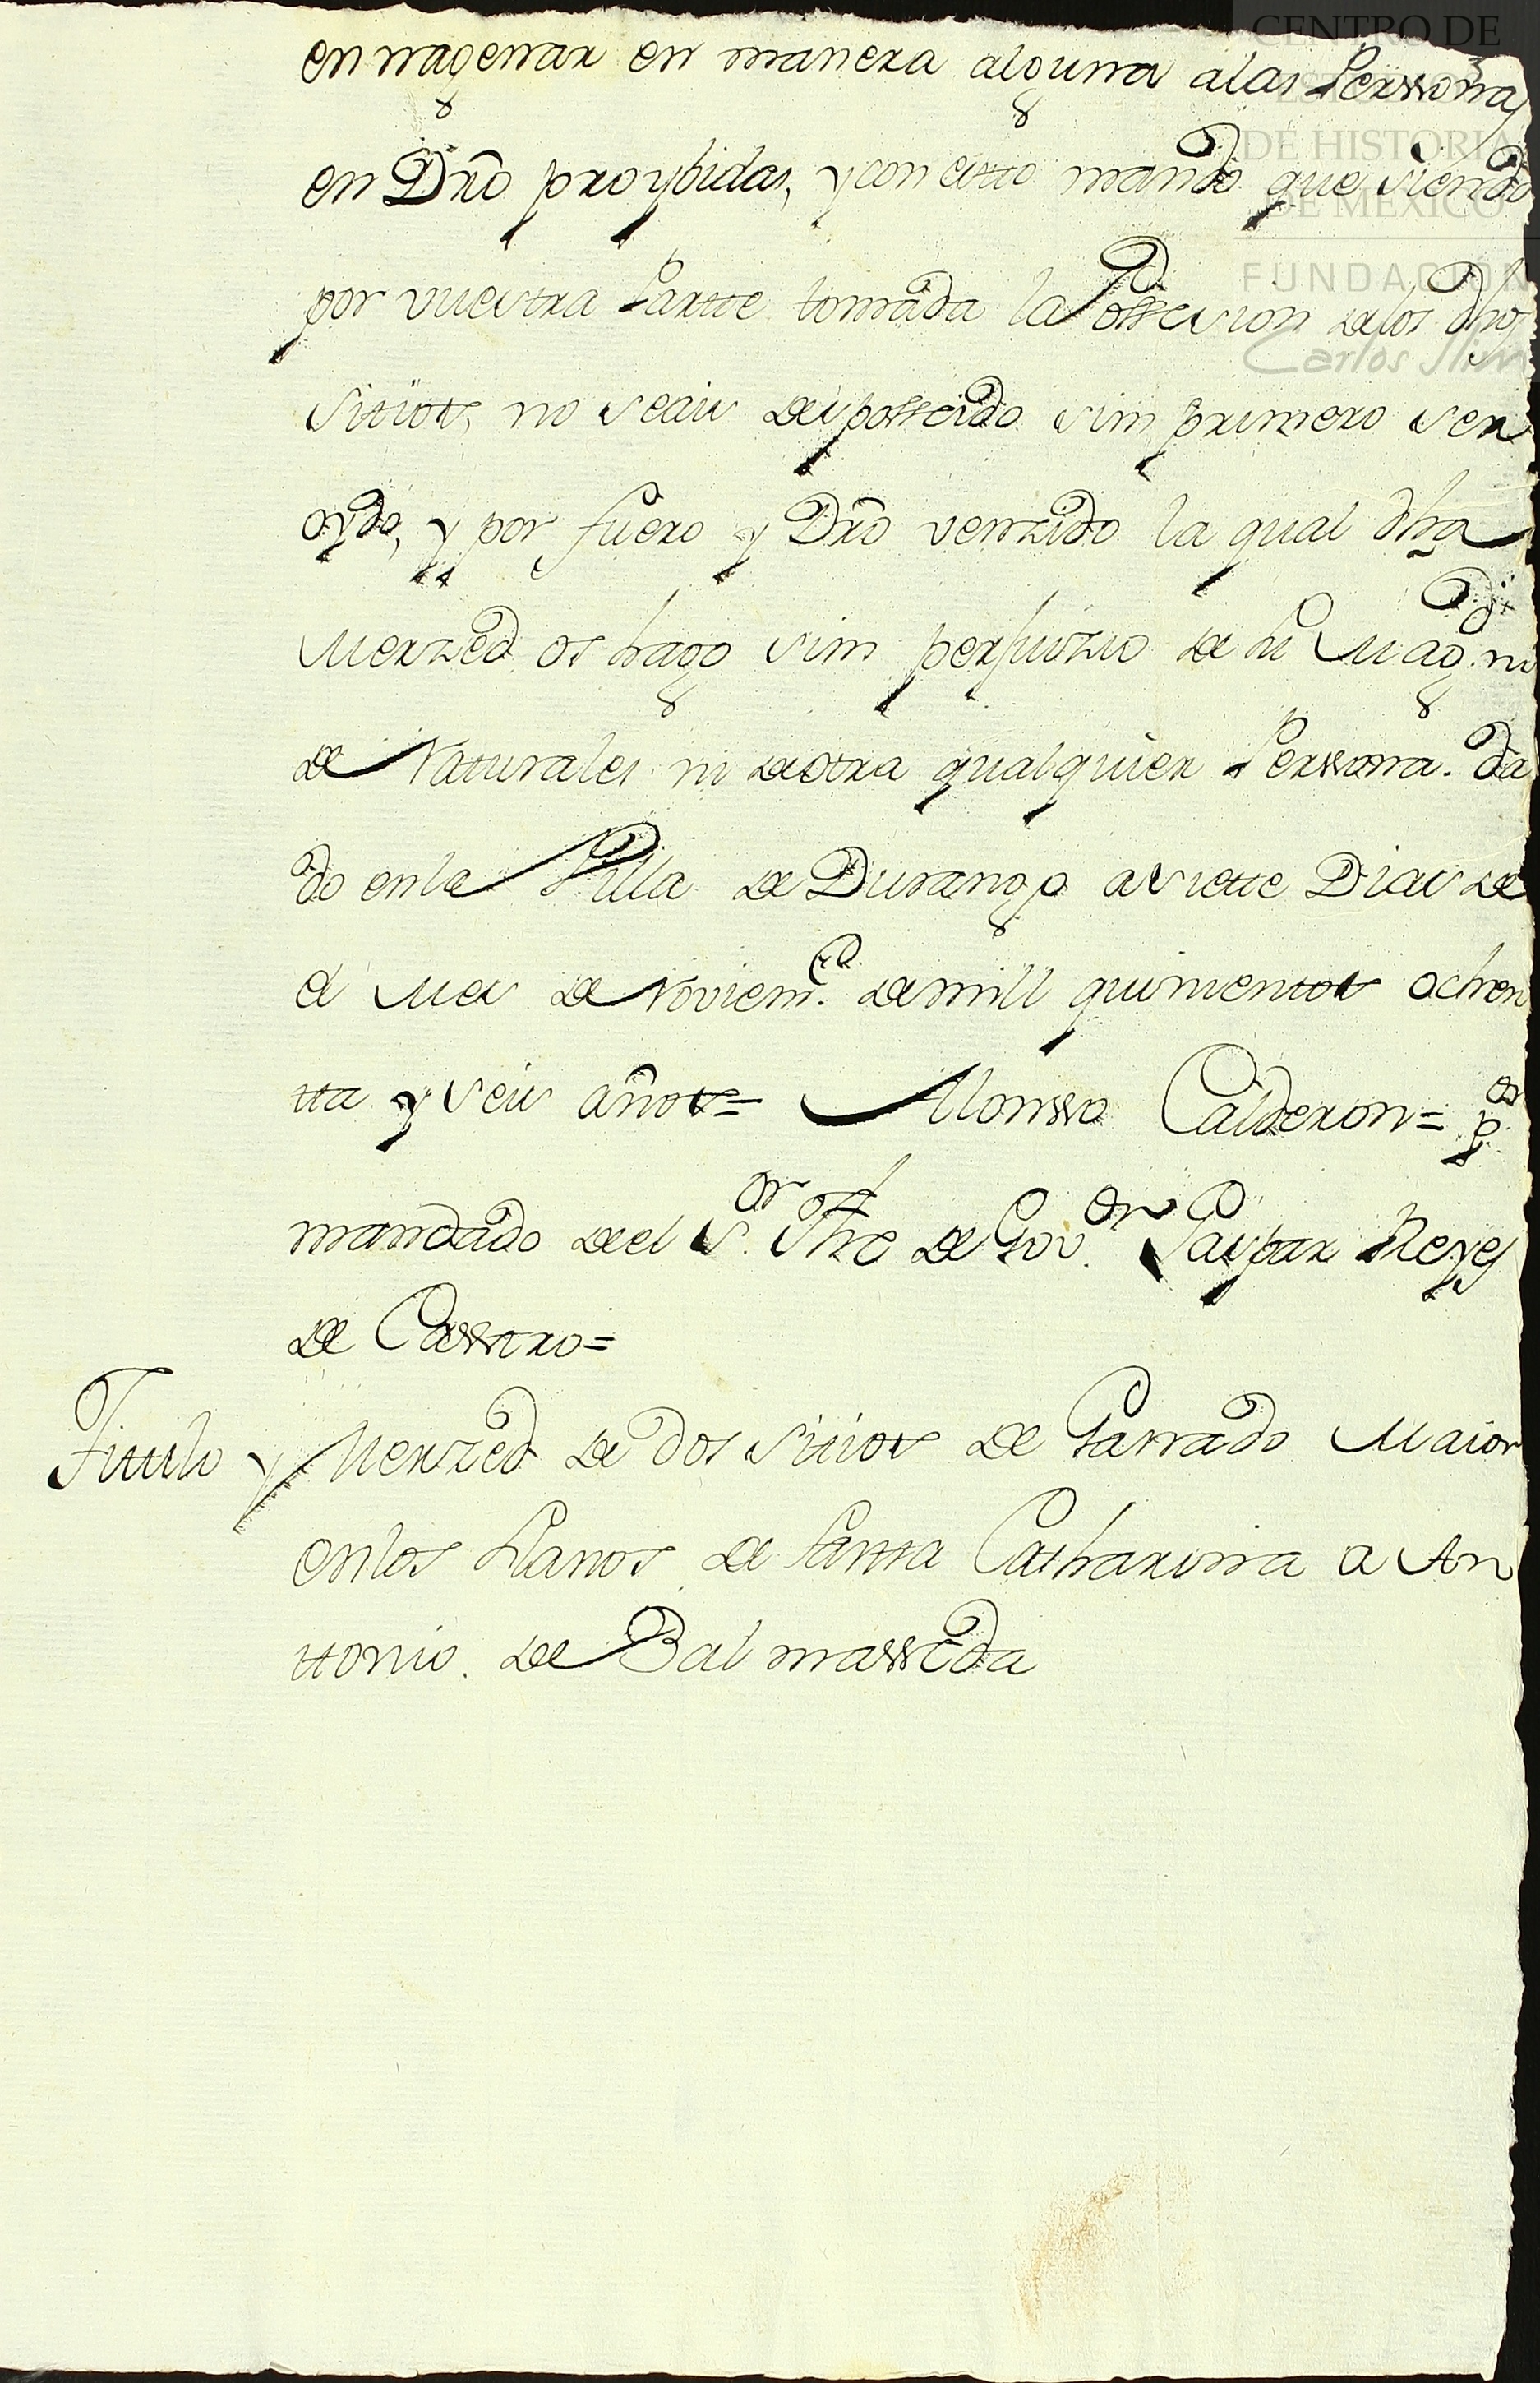 CENTRO DE
ESTUDIOS
DE HISTORIA
DE MÉXICO
FUNDACIÓN
Carlos Slim
ennagenar en manera alguna alas Perssonas
en Dr̃o proybidas, y con estto mando que siendo
por vuestra Partte tomada la Possesion delos dhos
sitios, no seais desposseido sim primero ser
oydo, y por fuero y Dr̃o venzido la qual dha
Merzed os hago sim perjuizio de su Magd. ni
de Naturales ni de otra qualquier Perssona. da
do enla Villa de Durango a siette Dias de
el Mes de Noviemre. de mill quinientos ochen
tta y seis años= Alonsso Calderon= por
mandado del Sor. Thte de Govor. Gaspar Reyes
de Casstro=
Tittulo y Merzed de dos sitios de Ganado Maior
enlos Llanos de Santta Catharina a An
ttonio de Balmasseda